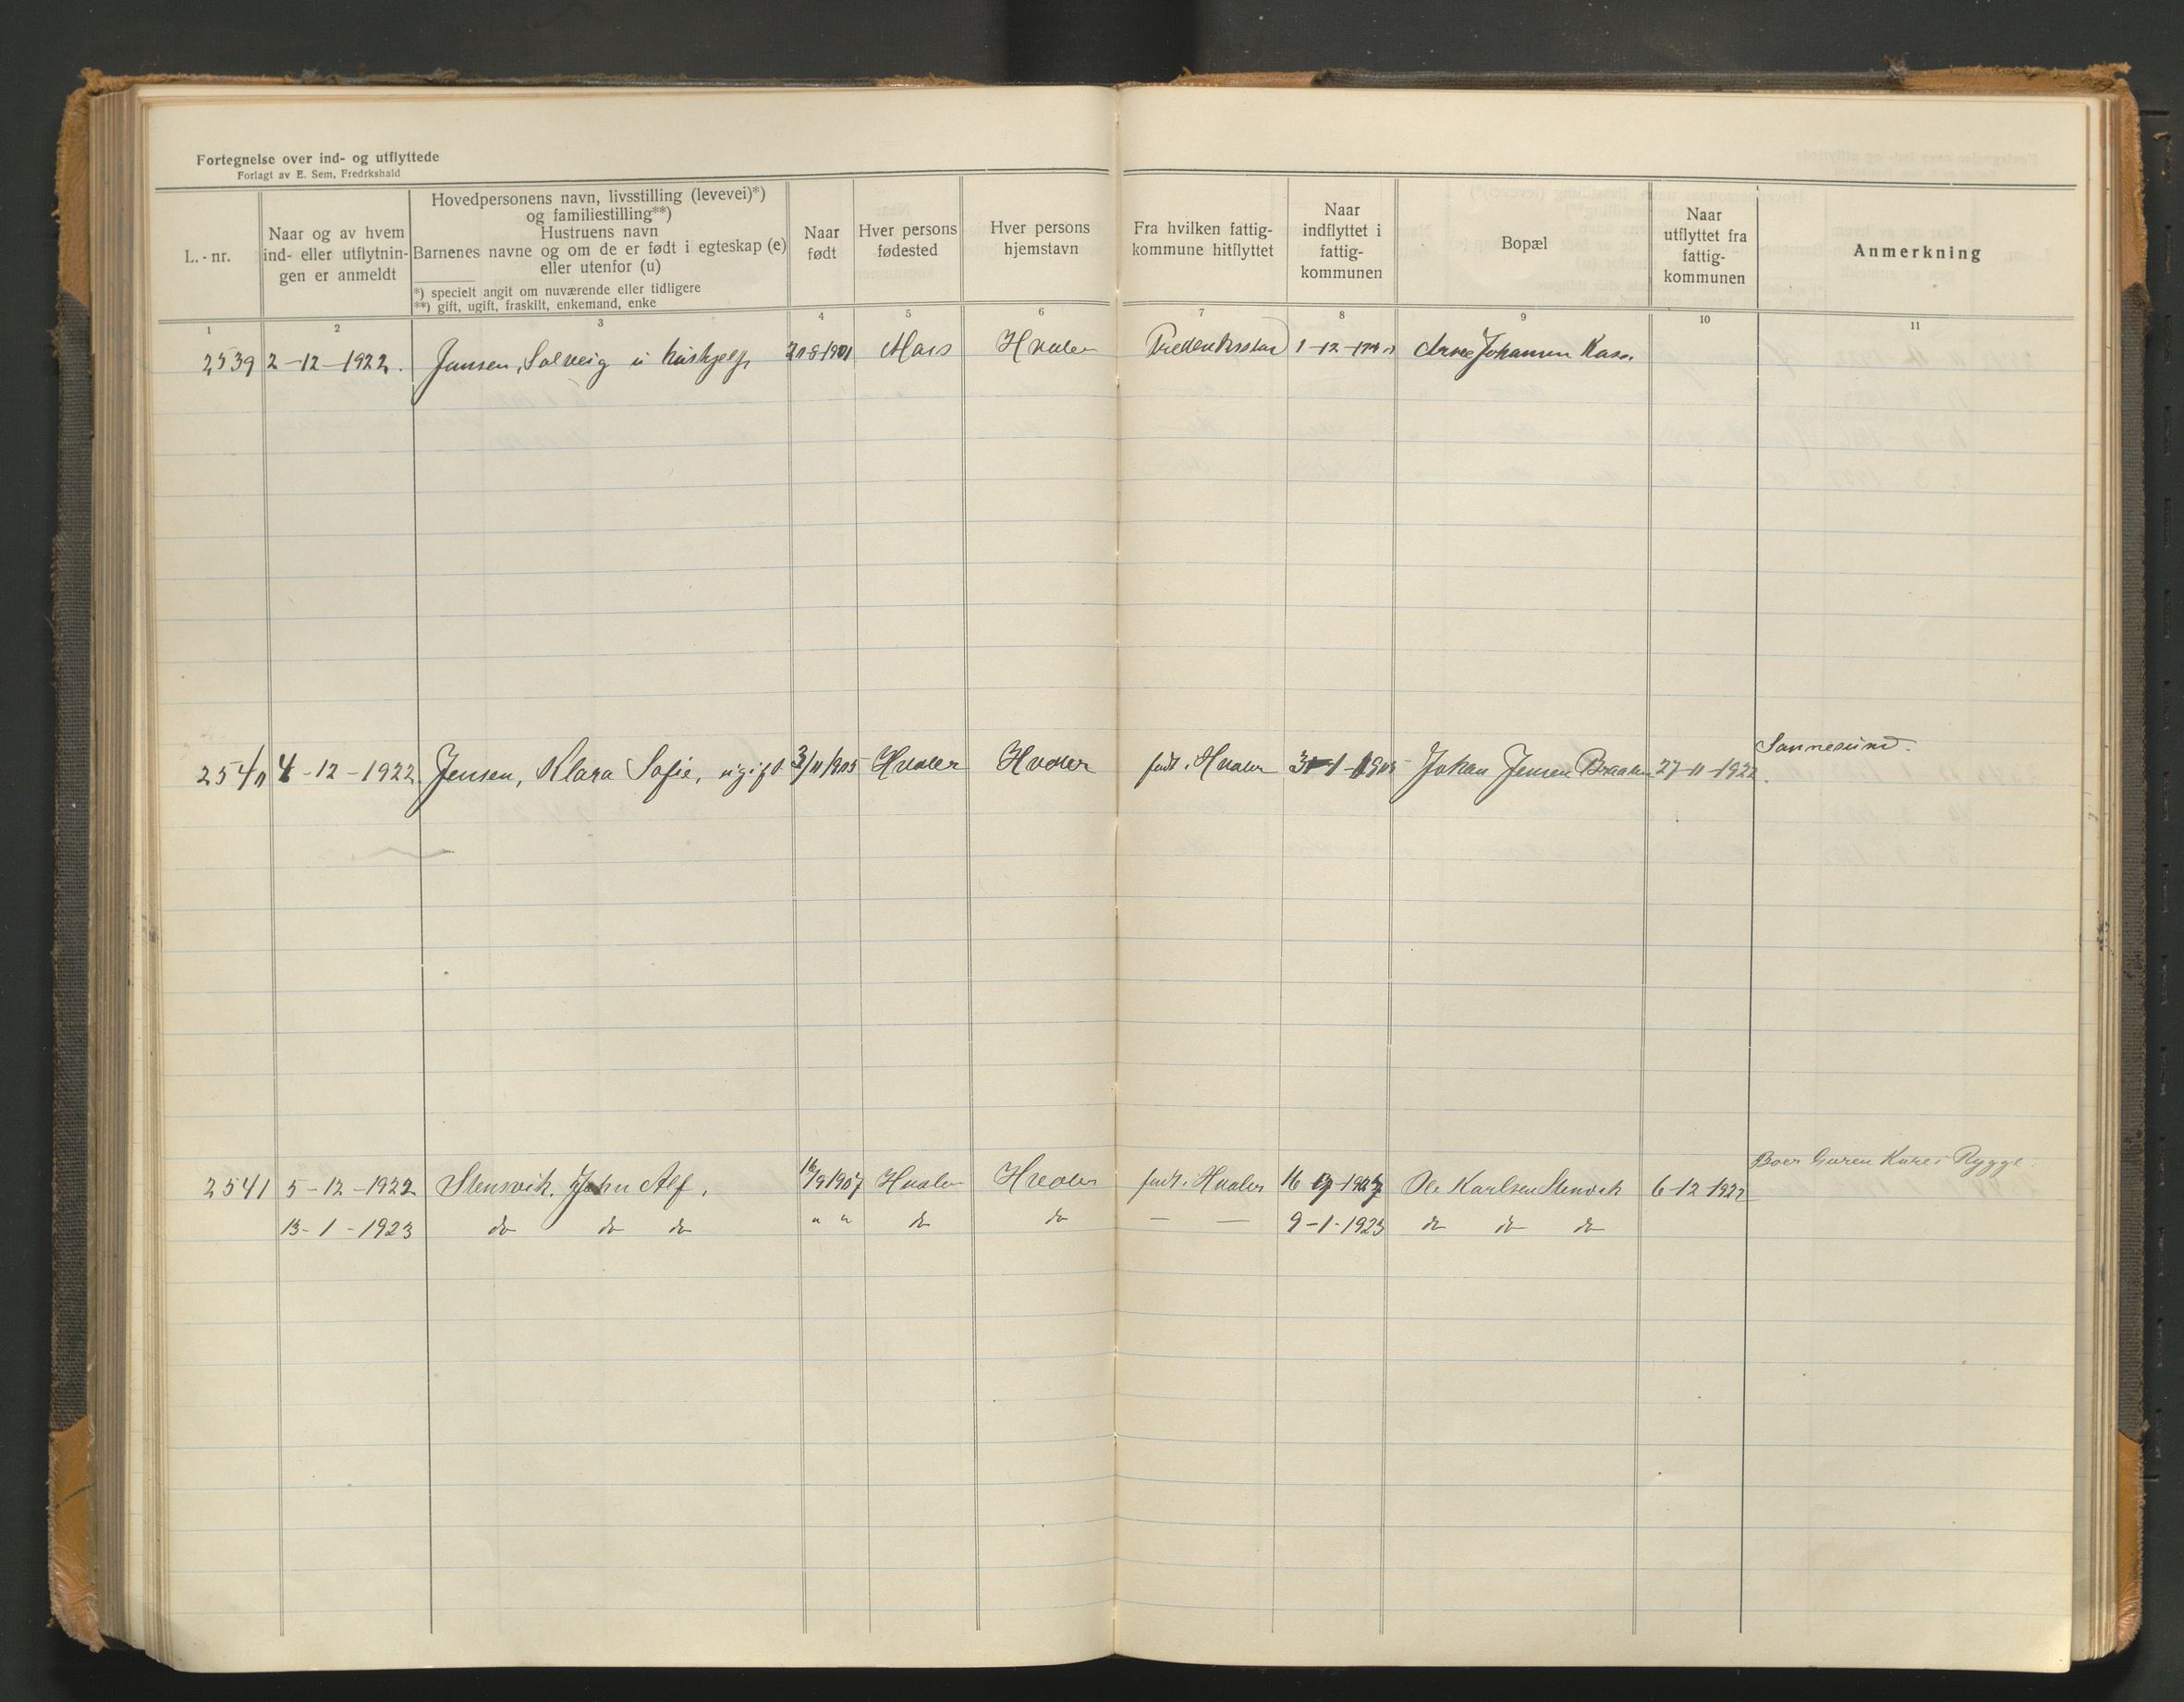 Fortegnelse over ind- og utflyttede
Forlagt av E. Sem, Fredrkshald
L. - nr.
Naar og av hvem
ind- eller utflytnin-
gen er anmeldt
Hovedpersonens navn, livsstilling (levevei)*)
og familiestilling**)
Hustruens navn
Barnenes navne og om de er født i egteskap (e)
eller utenfor (u)
*) specielt angit om nuværende eller tidligere
**) gift, ugift, fraskilt, enkemand, enke
Naar
født
Hver persons
fødested
Hver persons
hjemstavn
Fra hvilken fattig-
kommune hitflyttet
Naar
indflyttet i
fattig-
kommunen
Bopæl
Naar
utflyttet fra
fattig-
kommunen
Anmerkning
1 2 3 4 5 6 7 8 9 10 11
2539 2-12-1922. Jensen, Solveig u hushjelp Hvaler 1-12- Arne Johansen
Sannesund.
2540 4-12-1922. Jensen, Klara Sofie, ugift 3/11/1905 Hvaler Hvaler født i Hvaler Johan Jensen Braaten 27-11-1922.
Boer Guren Kure i Rygge.
2541 5-12-1922 Stensvik, John Alf, 16/9 1907 Hvaler Hvaler født i Hvaler 16 Ole Karlsen Stensvik 6-12-1922
13-1-1923 do do do " " do do — — 9-1-1923 do do do